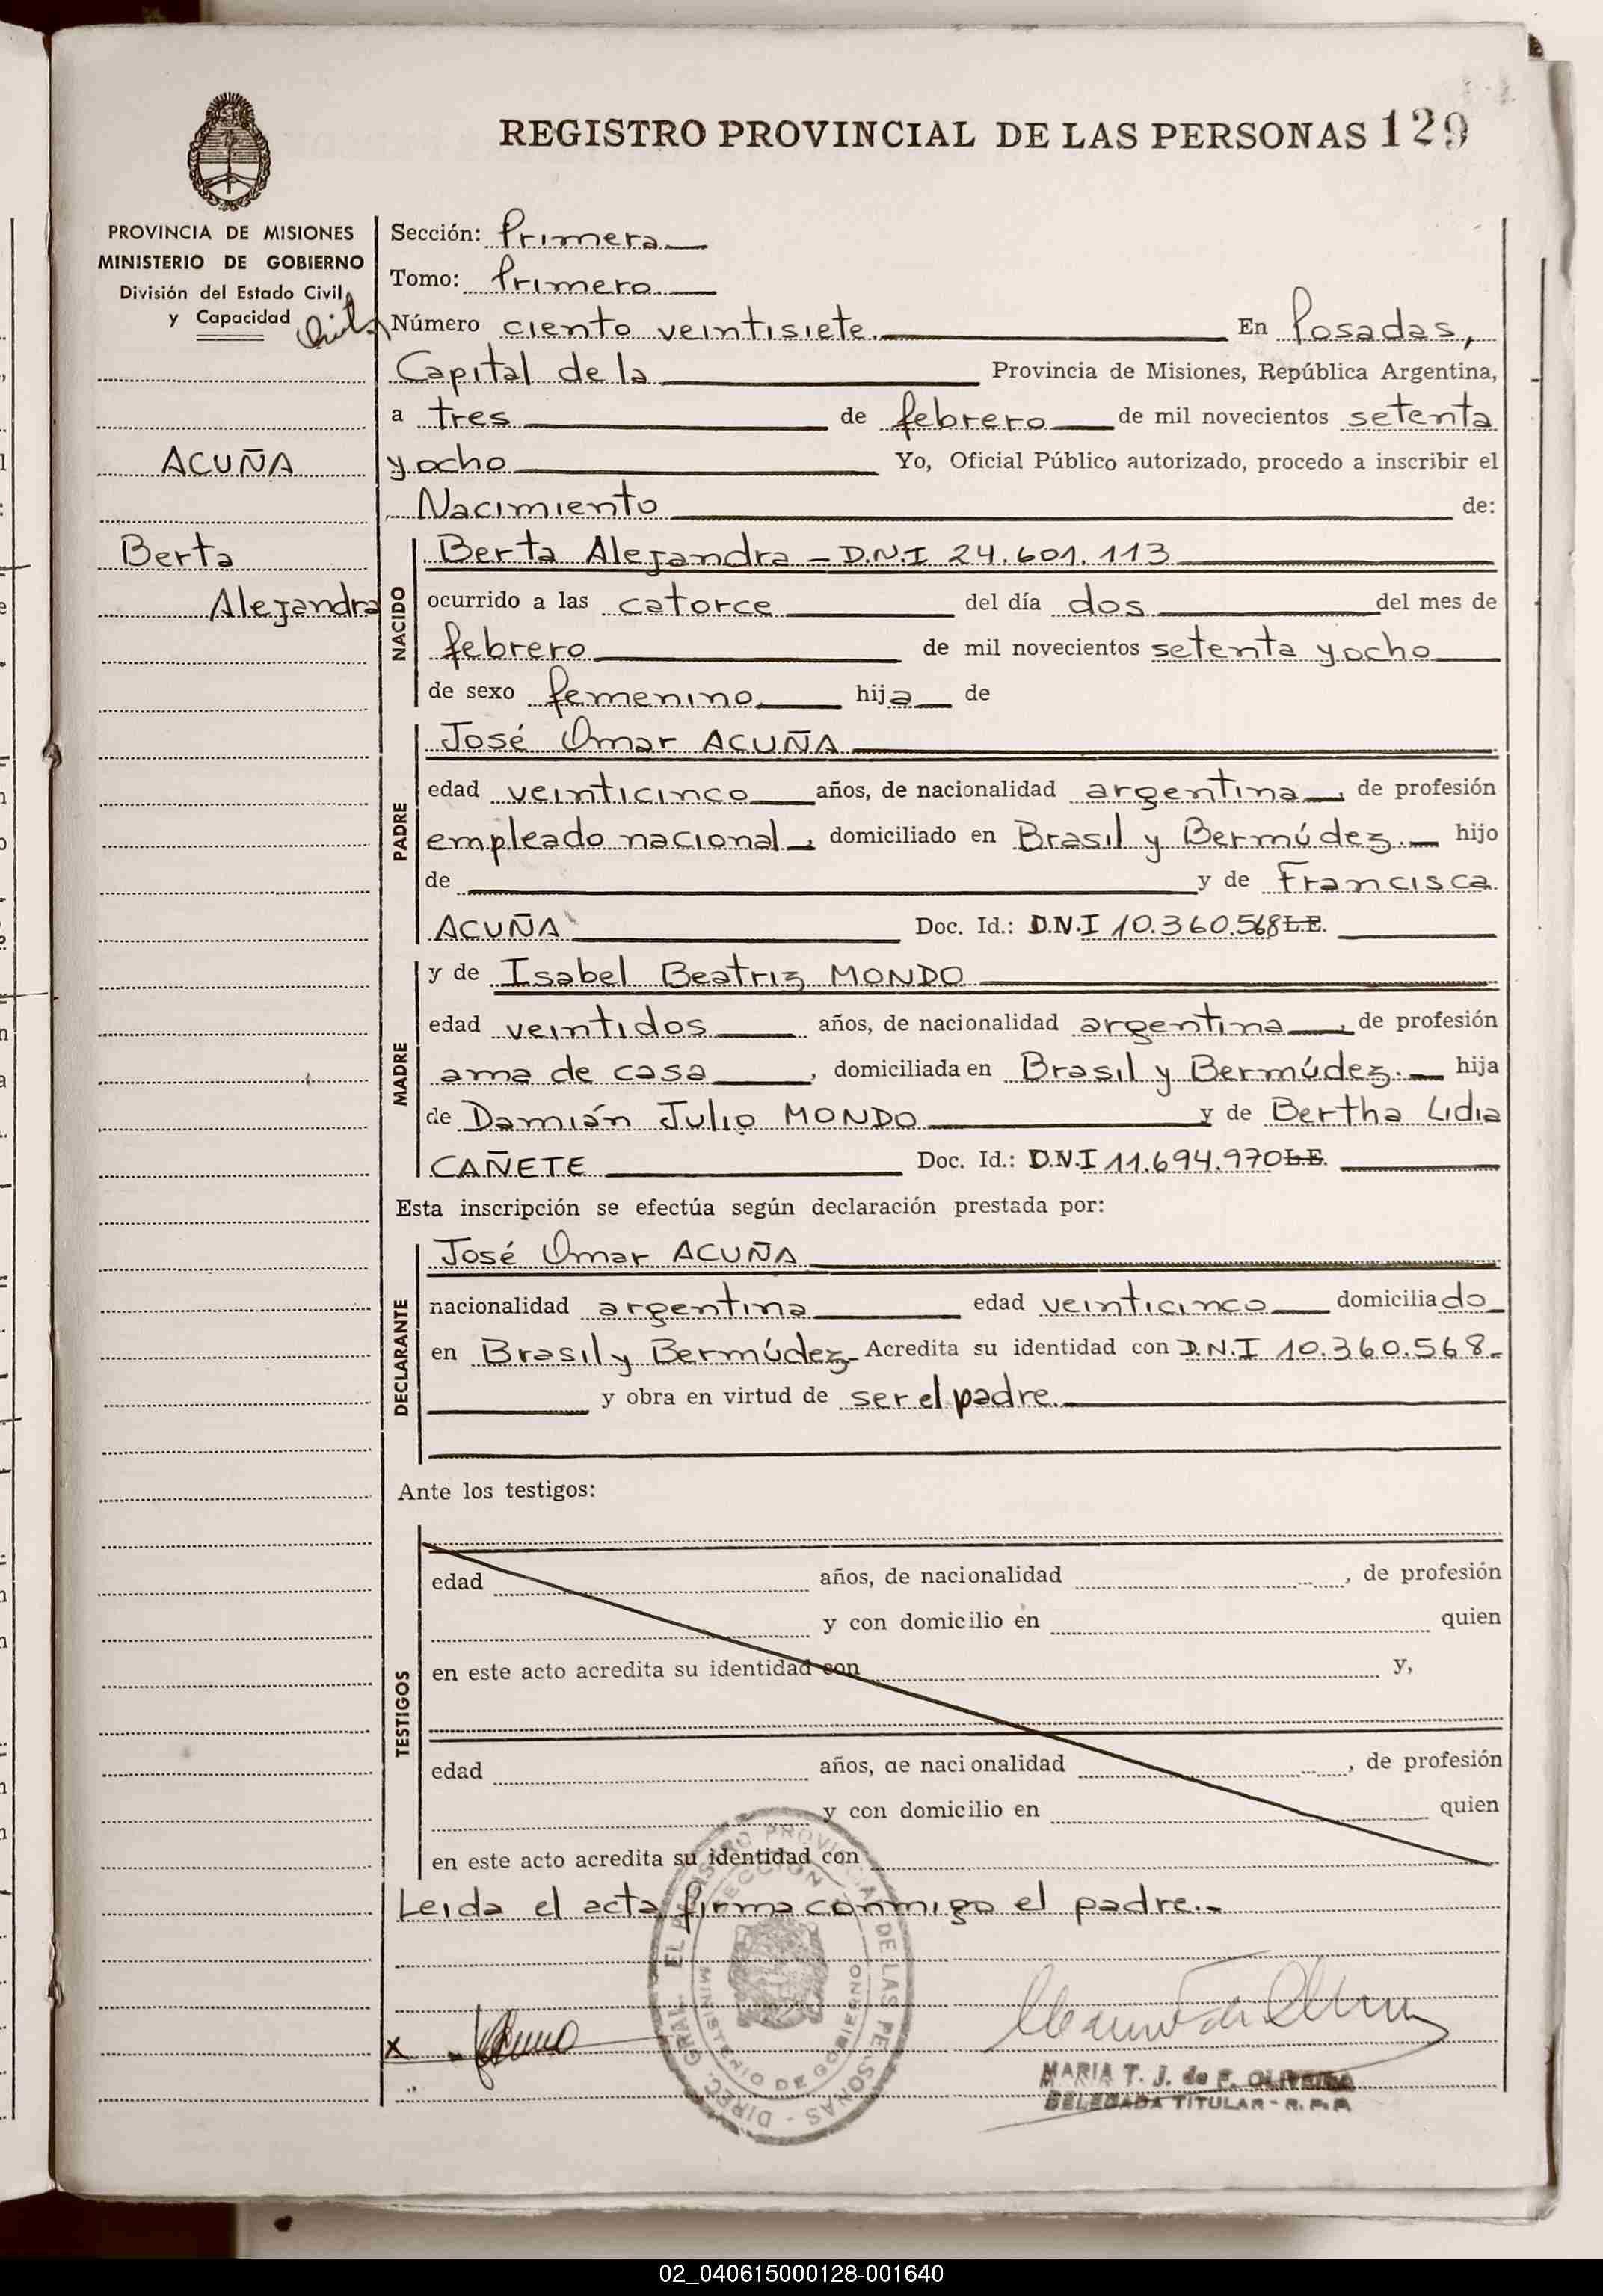 REGISTRO PROVINCIAL DE LAS PERSONAS 129
PROVINCIA DE MISIONES
MINISTERIO DE GOBIERNO
División del Estado Civil
y Capacidad
ACUÑA
Berta
Alejandra
Sección: Primera
Tomo: Primero
Número ciento veintisiete En Posadas,
Capital de la Provincia de Misiones, República Argentina,
a tres de febrero de mil novecientos setenta
y ocho Yo, Oficial Público autorizado, procedo a inscribir el
Nacimiento de:
NACIDO
Berta Alejandra - D.N.I 24.601.113
ocurrido a las catorce del día dos del mes de
febrero de mil novecientos setenta y ocho
de sexo femenino hija de
PADRE
José Omar ACUÑA
edad veinticinco años, de nacionalidad argentina, de profesión
empleado nacional, domiciliado en Brasil y Bermúdez. hijo
de y de Francisca
ACUÑA Doc. Id.: D.N.I 10.360.568 L.E.
MADRE
y de Isabel Beatriz MONDO
edad veintidos años, de nacionalidad argentina, de profesión
ama de casa, domiciliada en Brasil y Bermúdez. hija
de Damián Julio MONDO y de Bertha Lidia
CAÑETE Doc. Id.: D.N.I 11.694.970 L.E.
Esta inscripción se efectúa según declaración prestada por:
DECLARANTE
José Omar ACUÑA
nacionalidad argentina edad veinticinco domiciliado
en Brasil y Bermúdez Acredita su identidad con D.N.I 10.360.568.
y obra en virtud de ser el padre.
Ante los testigos:
TESTIGOS
edad años, de nacionalidad , de profesión
y con domicilio en quien
en este acto acredita su identidad con y,
edad años, de nacionalidad , de profesión
y con domicilio en quien
en este acto acredita su identidad con
Leida el acta, firma conmigo el padre.-
DIREC. GRAL. EL REGISTRO PROVINCIAL DE LAS PERSONAS
DIRECCION
MINISTERIO DE GOBIERNO
x
MARIA T. J. de F. OLIVEIRA
DELEGADA TITULAR - R. P. P.
02_040615000128-001640